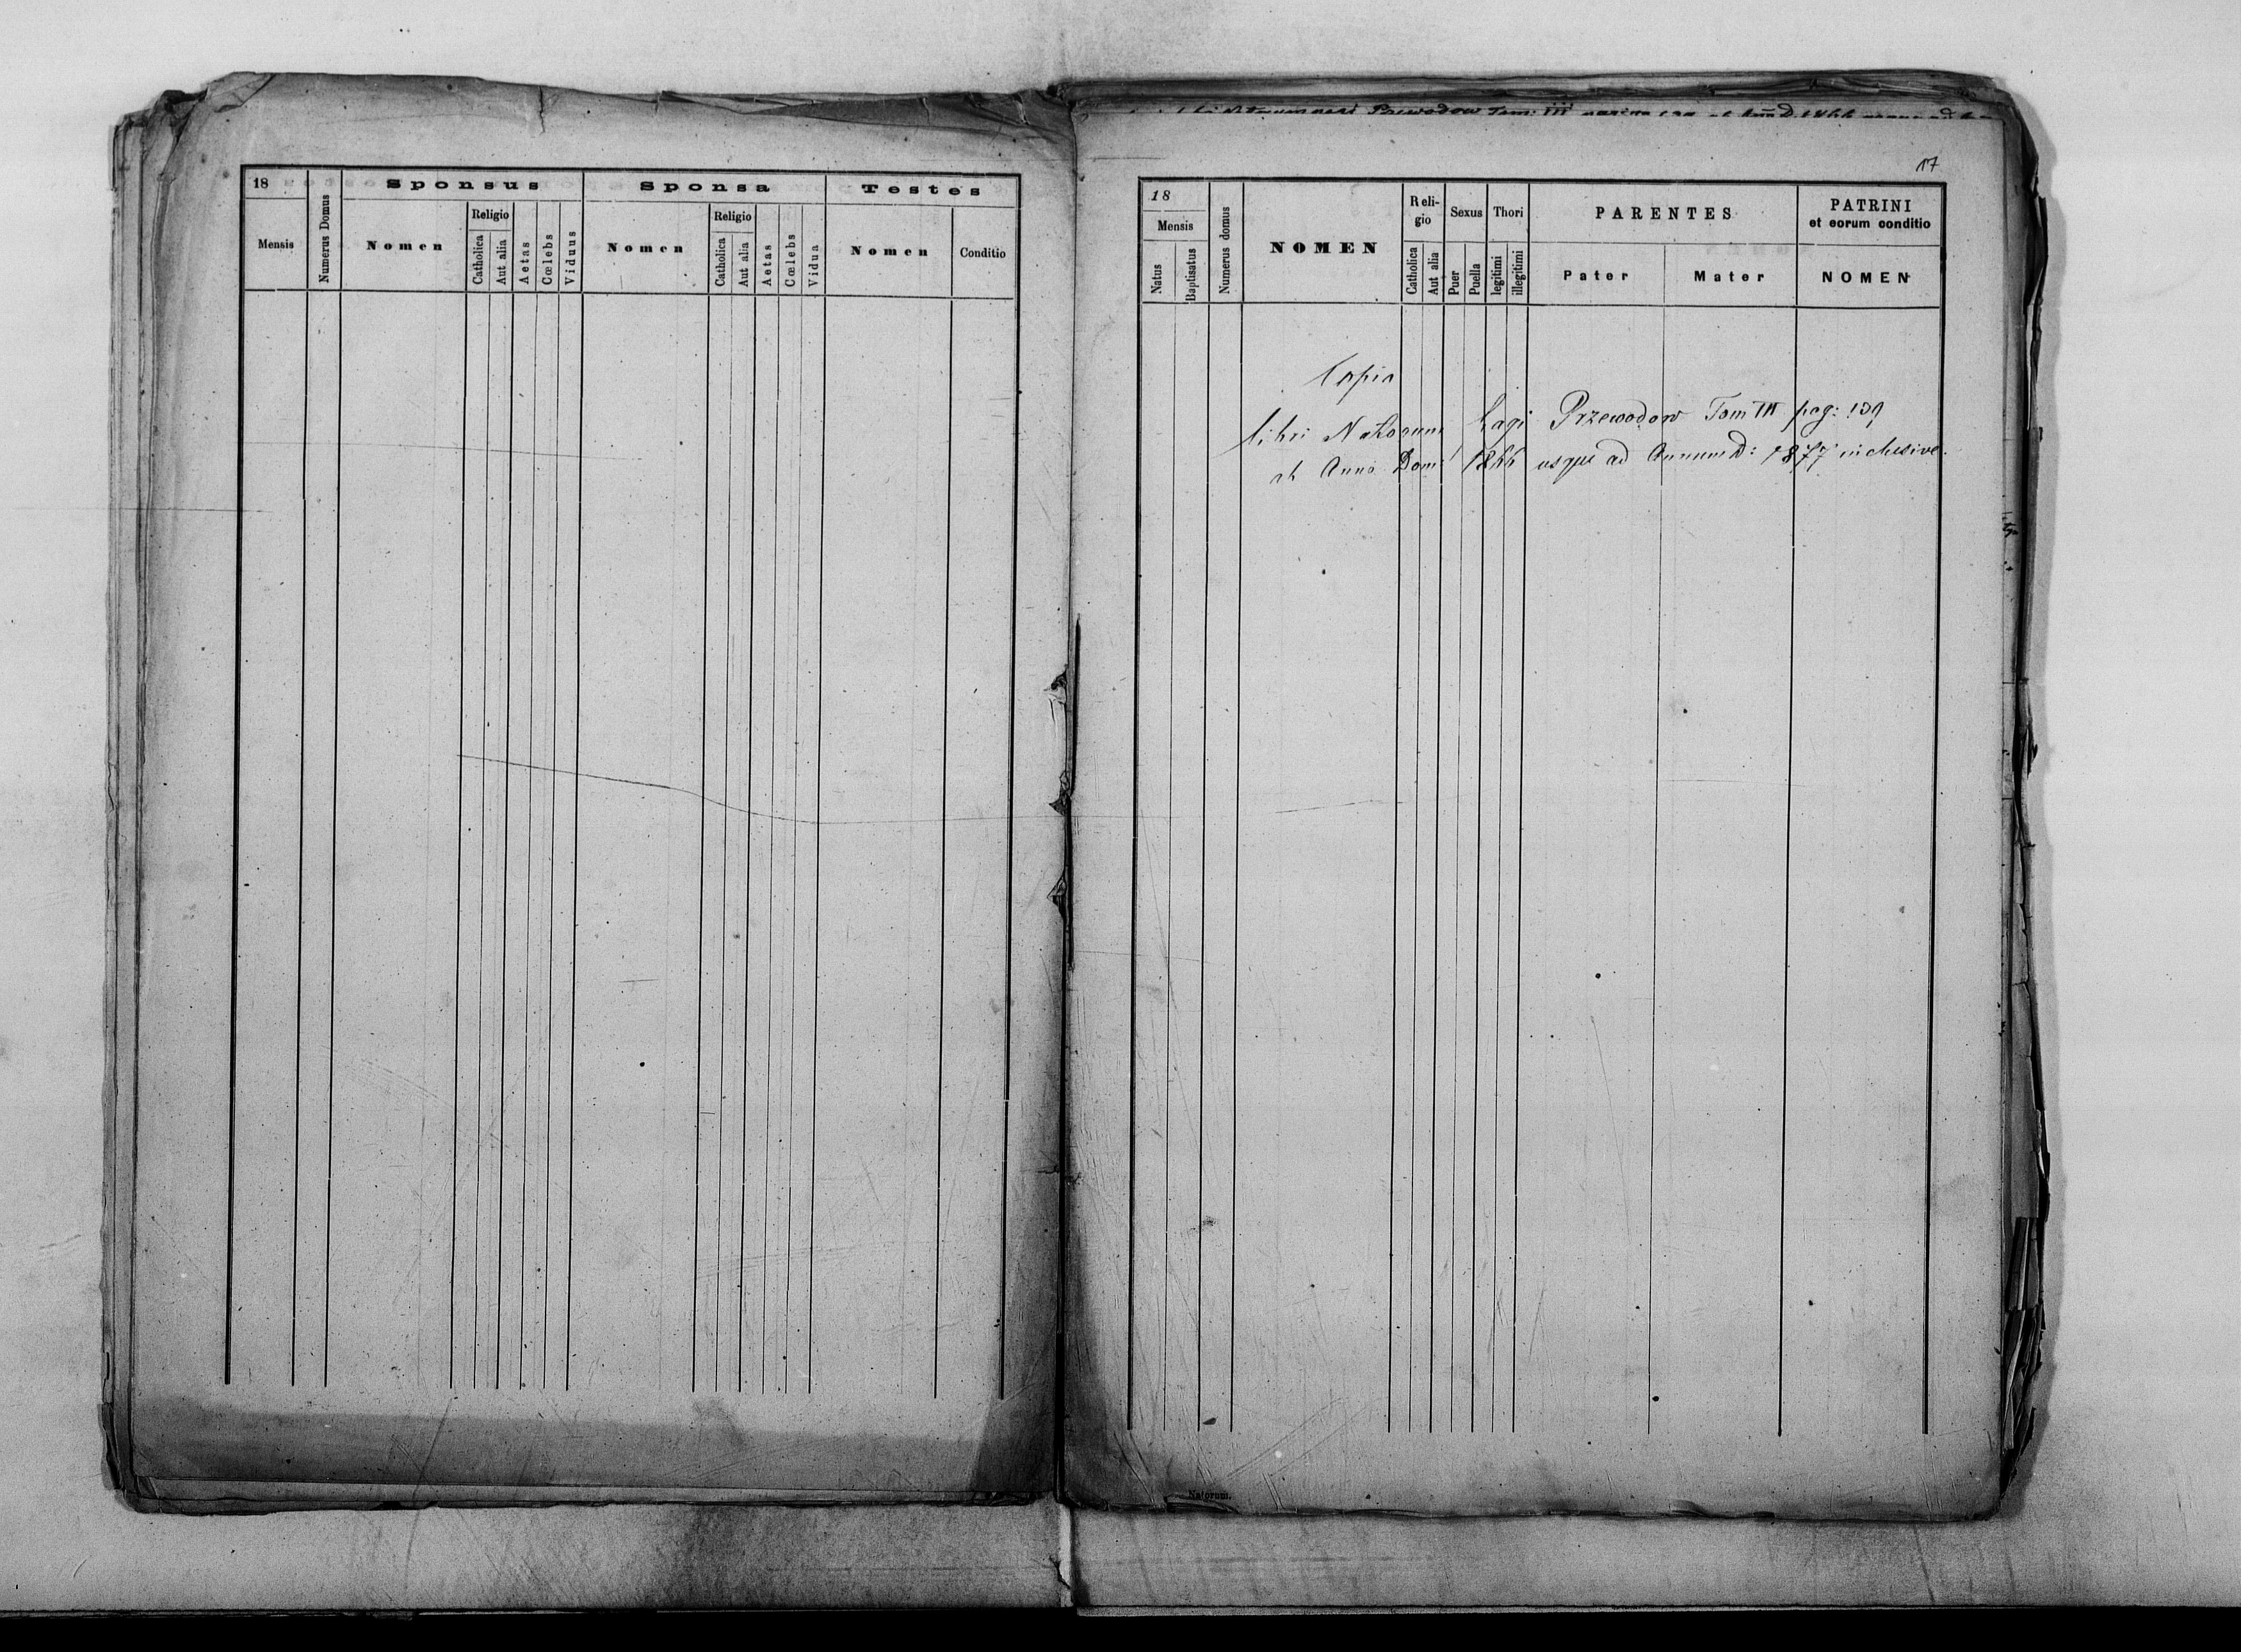 18
Sponsus
Sponsa
Testes
Mensis
Numerus Domus
Nomen
Religio
Catholica
Aut alia
Aetas
Cœlebs
Viduus
Nomen
Religio
Catholica
Aut alia
Aetas
Cœlebs
Vidua
Nomen
Conditio
Przewodow Tom: III
17
18
Mensis
Natus
Baptisatus
Numerus domus
NOMEN
Reli-
gio
Catholica
Aut alia
Sexus
Puer
Puella
Thori
legitimi
illegitimi
PARENTES
Pater
Mater
PATRINI
et eorum conditio
NOMEN
Copia
libri Natorum Przewodow Tom III pag: 139
ab Anno Dom: 1866 usque ad Annum D: 1877 inclusive.
Natorum.